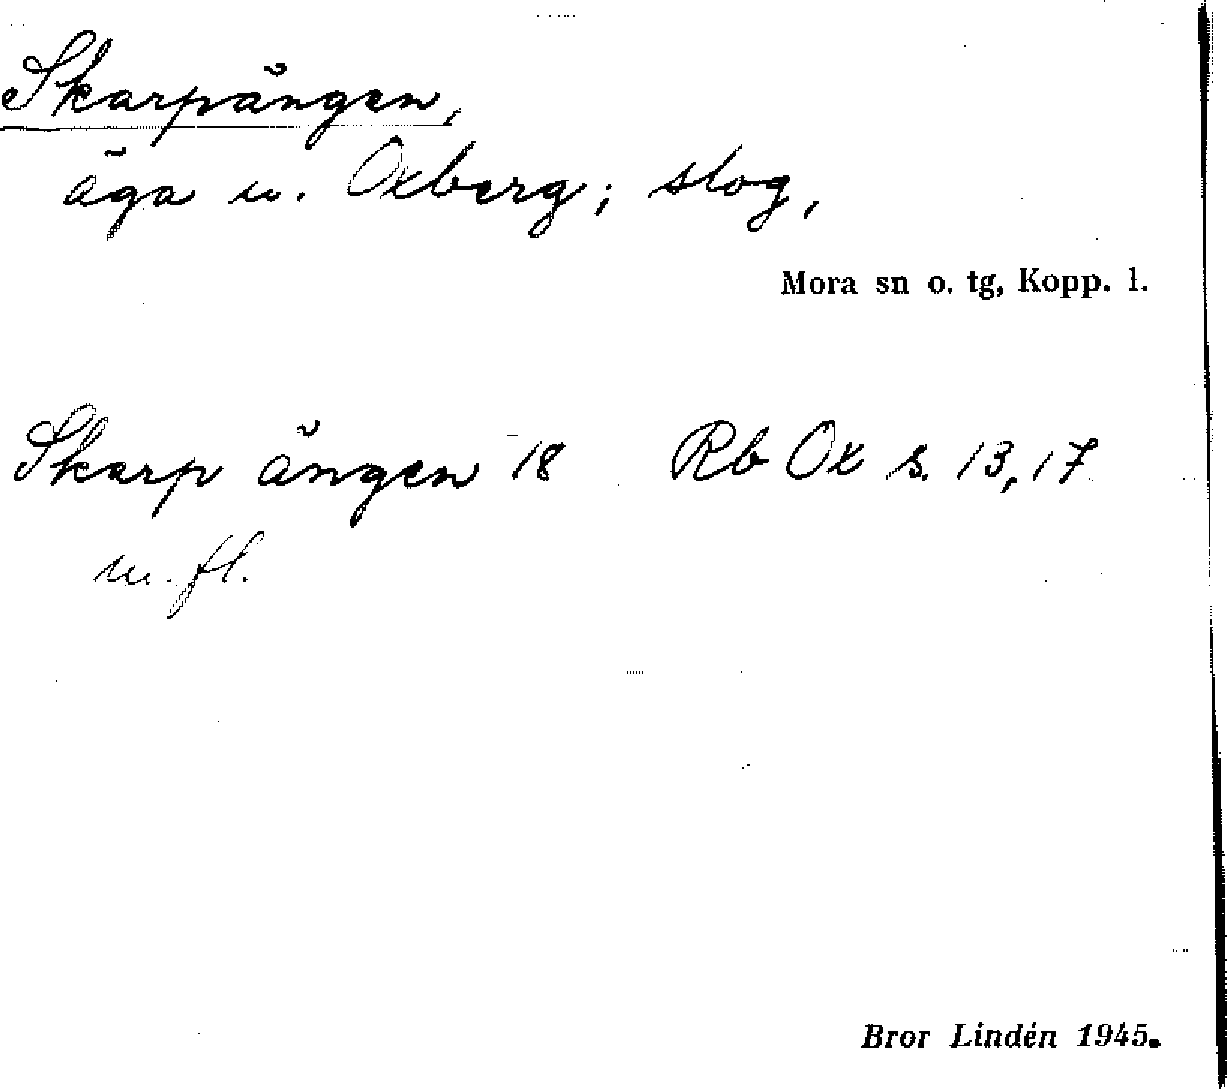 Skarpängen,
äga u. Oxberg; slog,
Mora sn o. tg, Kopp. l.
Skarp ängen 18 Rb Ox s. 13, 17
m. fl.
Bror Lindén 1945.